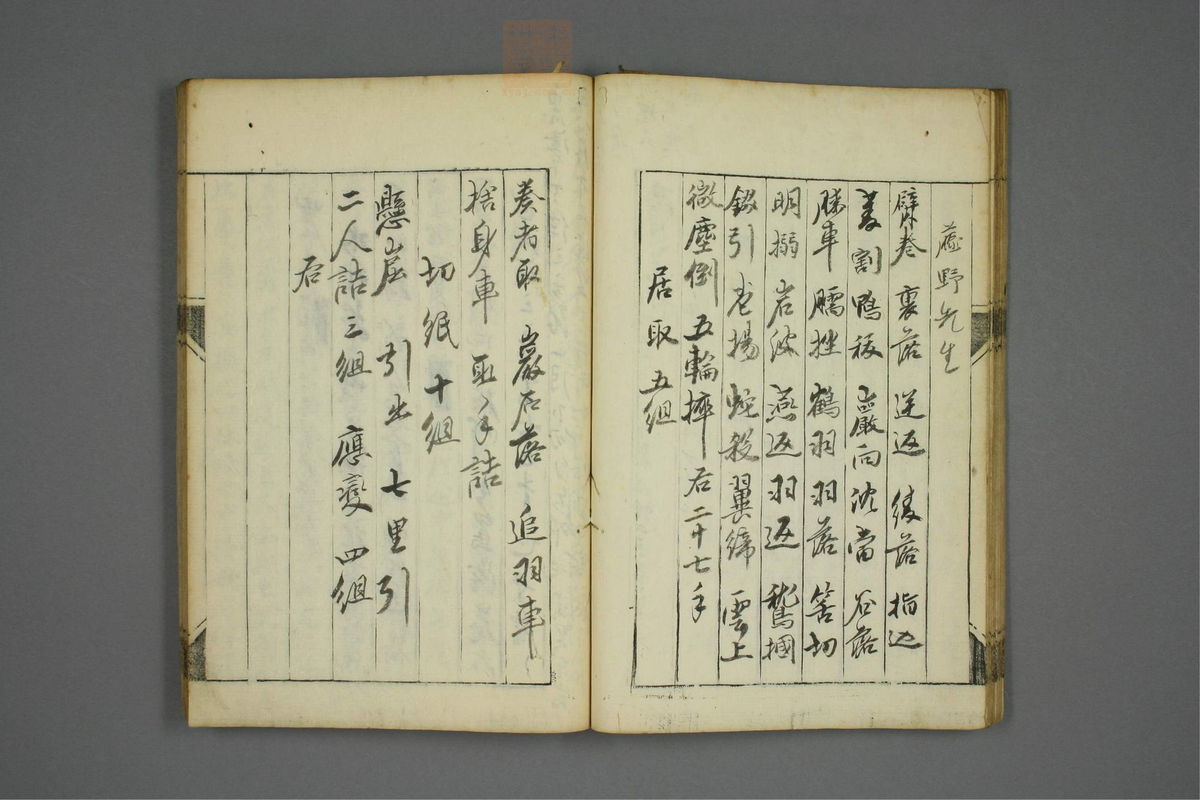 蔗野先生
臂巻 裏落 逆返 後落 指込
菱割 鴨 巖向 沈當 谷落
膝車 臑挫 鶴羽 羽落 筈切
明搦 岩波 燕返 羽返 鷲摑
錣引 虎揚 蛇殺 翼締 雲上
微塵倒 五輪捽 右二十七手
居取五組
奏者取 巖石落 追羽車
捨身車 取手詰
切紙十組
懸崖 引出 七里引
二人詰三組 應變四組
右